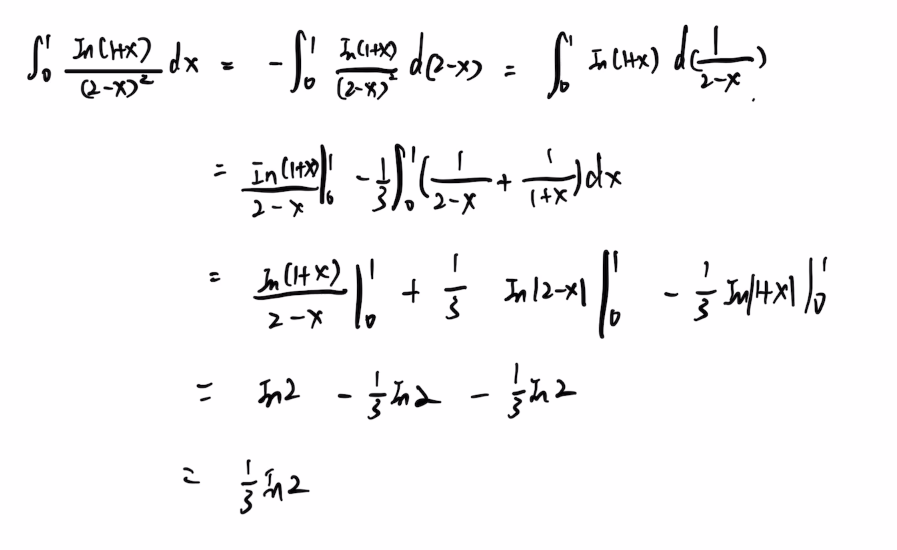 ∫₀¹ ln(1+x)/(2-x)² dx = -∫₀¹ ln(1+x)/(2-x)² d(2-x) = ∫₀¹ ln(1+x) d(1/(2-x))
= ln(1+x)/(2-x) |₀¹ - 1/3 ∫₀¹ (1/(2-x) + 1/(1+x)) dx
= ln(1+x)/(2-x) |₀¹ + 1/3 ln|2-x| |₀¹ - 1/3 ln|1+x| |₀¹
= ln2 - 1/3 ln2 - 1/3 ln2
= 1/3 ln2